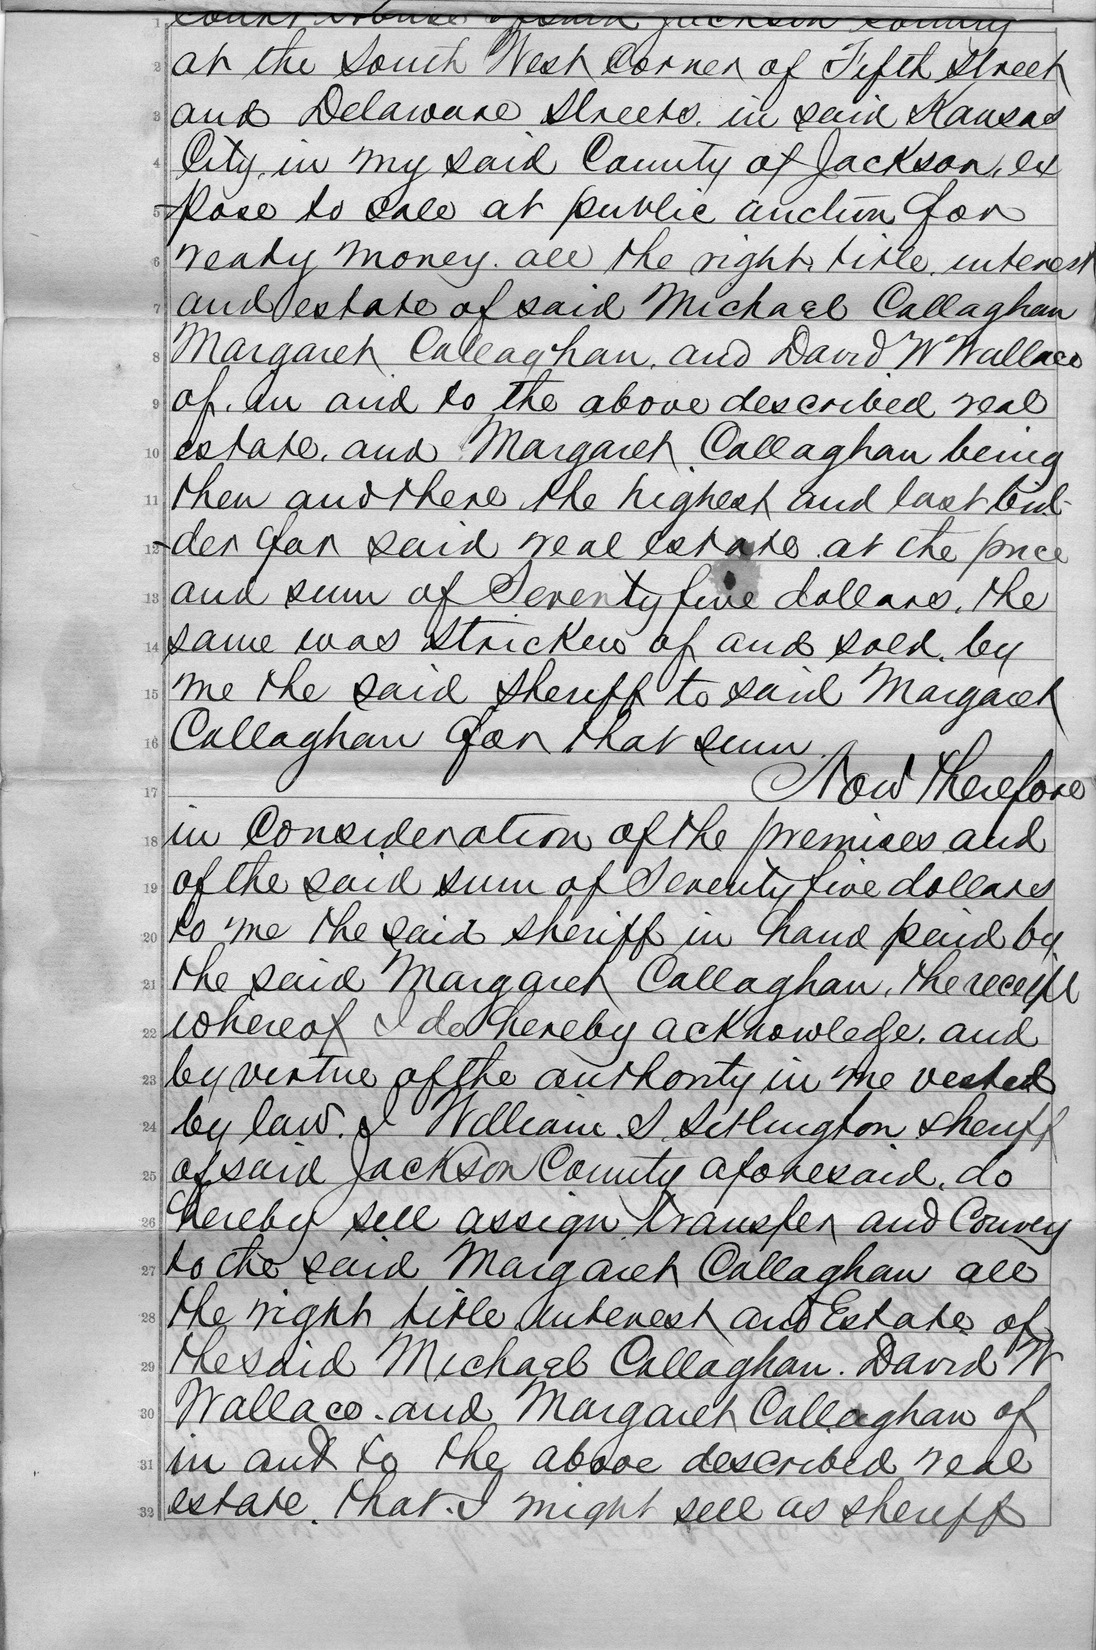 court House of said Jackson County
at the South West Corner of Fifth Street
and Delaware Streets. in said Kansas
City, in my said County of Jackson, ex
pose to sale at public auction for
ready money. all the right, title, interest
and estate of said Michael Callaghan
Margaret Callaghan. and David W Wallace
of. in and to the above described real
estate. and Margaret Callaghan being
then and there the highest and last bid-
der for said real estate. at the price
and sum of Seventy five dollars, the
same was stricken of and sold. by
me the said Sheriff to said Margaret
Callaghan for that sum.
Now Therefore
in Consideration of the premises and
of the said sum of Seventy five dollars
to me the said sheriff in hand paid by
the said Margaret Callaghan, the receipt
whereof I do hereby acknowledge. and
by virtue of the authority in me vested
by law. I William. S. Sitlington sheriff
of said Jackson County aforesaid. do
hereby sell assign transfer and Convey
to the said Margaret Callaghan all
the right title interest and Estate of
the said Michael Callaghan. David W
Wallace. and Margaret Callaghan of
in and to the above described real
estate. that I might sell as sheriff